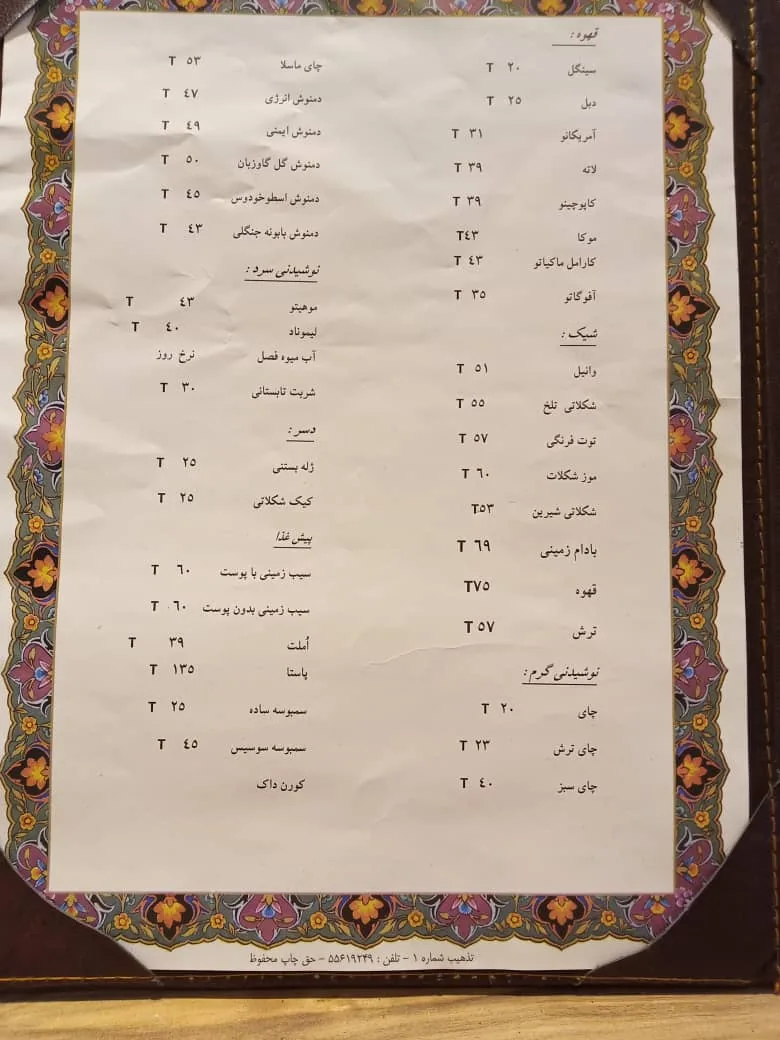 قهوه :
سینگل ۲۰ T
دبل ۲۵ T
آمریکانو ۳۱ T
لاته ۳۹ T
کاپوچینو ۳۹ T
موکا ۴۳T
کارامل ماکیاتو ۴۳ T
آفوگاتو ۳۵ T
شیک :
وانیل ۵۱ T
شکلاتی تلخ ۵۵ T
توت فرنگی ۵۷ T
موز شکلات ۶۰ T
شکلاتی شیرین ۵۳T
بادام زمینی ۶۹ T
قهوه ۷۵T
ترش ۵۷ T
نوشیدنی گرم :
چای ۲۰ T
چای ترش ۲۳ T
چای سبز ۴۰ T
چای ماسلا ۵۳ T
دمنوش انرژی ۴۷ T
دمنوش ایمنی ۴۹ T
دمنوش گل گاوزبان ۵۰ T
دمنوش اسطوخودوس ۴۵ T
دمنوش بابونه جنگلی ۴۳ T
نوشیدنی سرد :
موهیتو ۴۳ T
لیموناد ۴۰ T
آب میوه فصل نرخ روز
شربت تابستانی ۳۰ T
دسر :
ژله بستنی ۲۵ T
کیک شکلاتی ۲۵ T
پیش غذا
سیب زمینی با پوست ۶۰ T
سیب زمینی بدون پوست ۶۰ T
اُملت ۳۹ T
پاستا ۱۳۵ T
سمبوسه ساده ۲۵ T
سمبوسه سوسیس ۴۵ T
کورن داک
تذهیب شماره ۱ - تلفن : ۵۵۶۱۹۲۴۹ - حق چاپ محفوظ